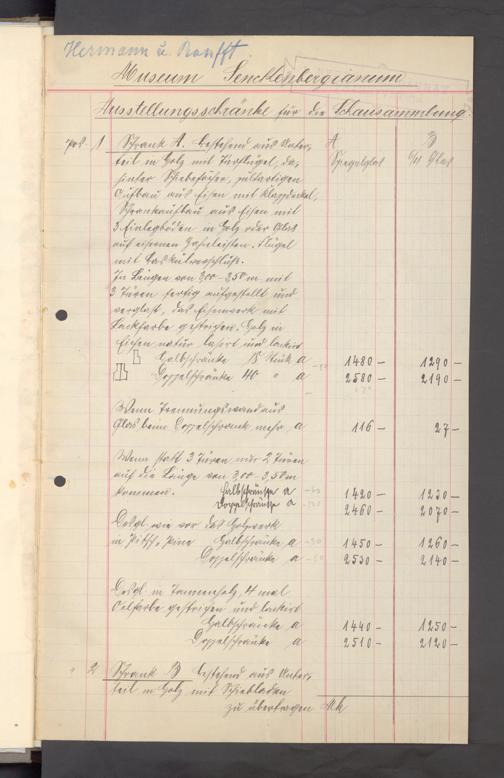 Hermann u. Ranfft.
Museum Senckenbergianum
Ausstellungsschränke für die Schausammlung.
pos. 1 Schrank A. bestehend aus Unter- A B
teil in Holz mit Türflügel, da- Spiegelglas 6/4 Glas
hinter Schiebefächer, pultartigen
Aufbau aus Eisen mit Klappdeckel,
Schrankaufbau aus Eisen mit
3 Einlegböden in Holz oder Glas
auf eisernen Zahnleisten. Flügel
mit Baskülverschluss.
In Längen von 3,00 - 3,50 m mit
3 Türen fertig aufgestellt und
verglast, das Eisenwerk mit
Lackfarbe gestrichen. Holz in
Eichen natur lasirt und lackirt
Halbschränke 18 Stück a 1480 - 1290 -
Doppelschränke 40 " a 2580 - 2190 -
Wenn Trennungswand aus
Glas beim Doppelschrank mehr a 116 - 27 -
Wenn statt 3 Türen nur 2 Türen
auf die Länge von 3,00 - 3,50 m
kommen. Halbschränke a 1420 - 1230 -
Doppelschränke a 2460 - 2070 -
Desgl. wie vor das Holzwerk
in Pitch-pine Halbschränke a 1450 - 1260 -
Doppelschränke a 2530 - 2140 -
Desgl. in Tannenholz, 4 mal
Oelfarbe gestrichen und lackirt
Halbschränke a 1440 - 1250 -
Doppelschränke a 2510 - 2120 -
" 2 Schrank B bestehend aus Unter-
teil in Holz mit Schiebladen
zu übertragen Mk